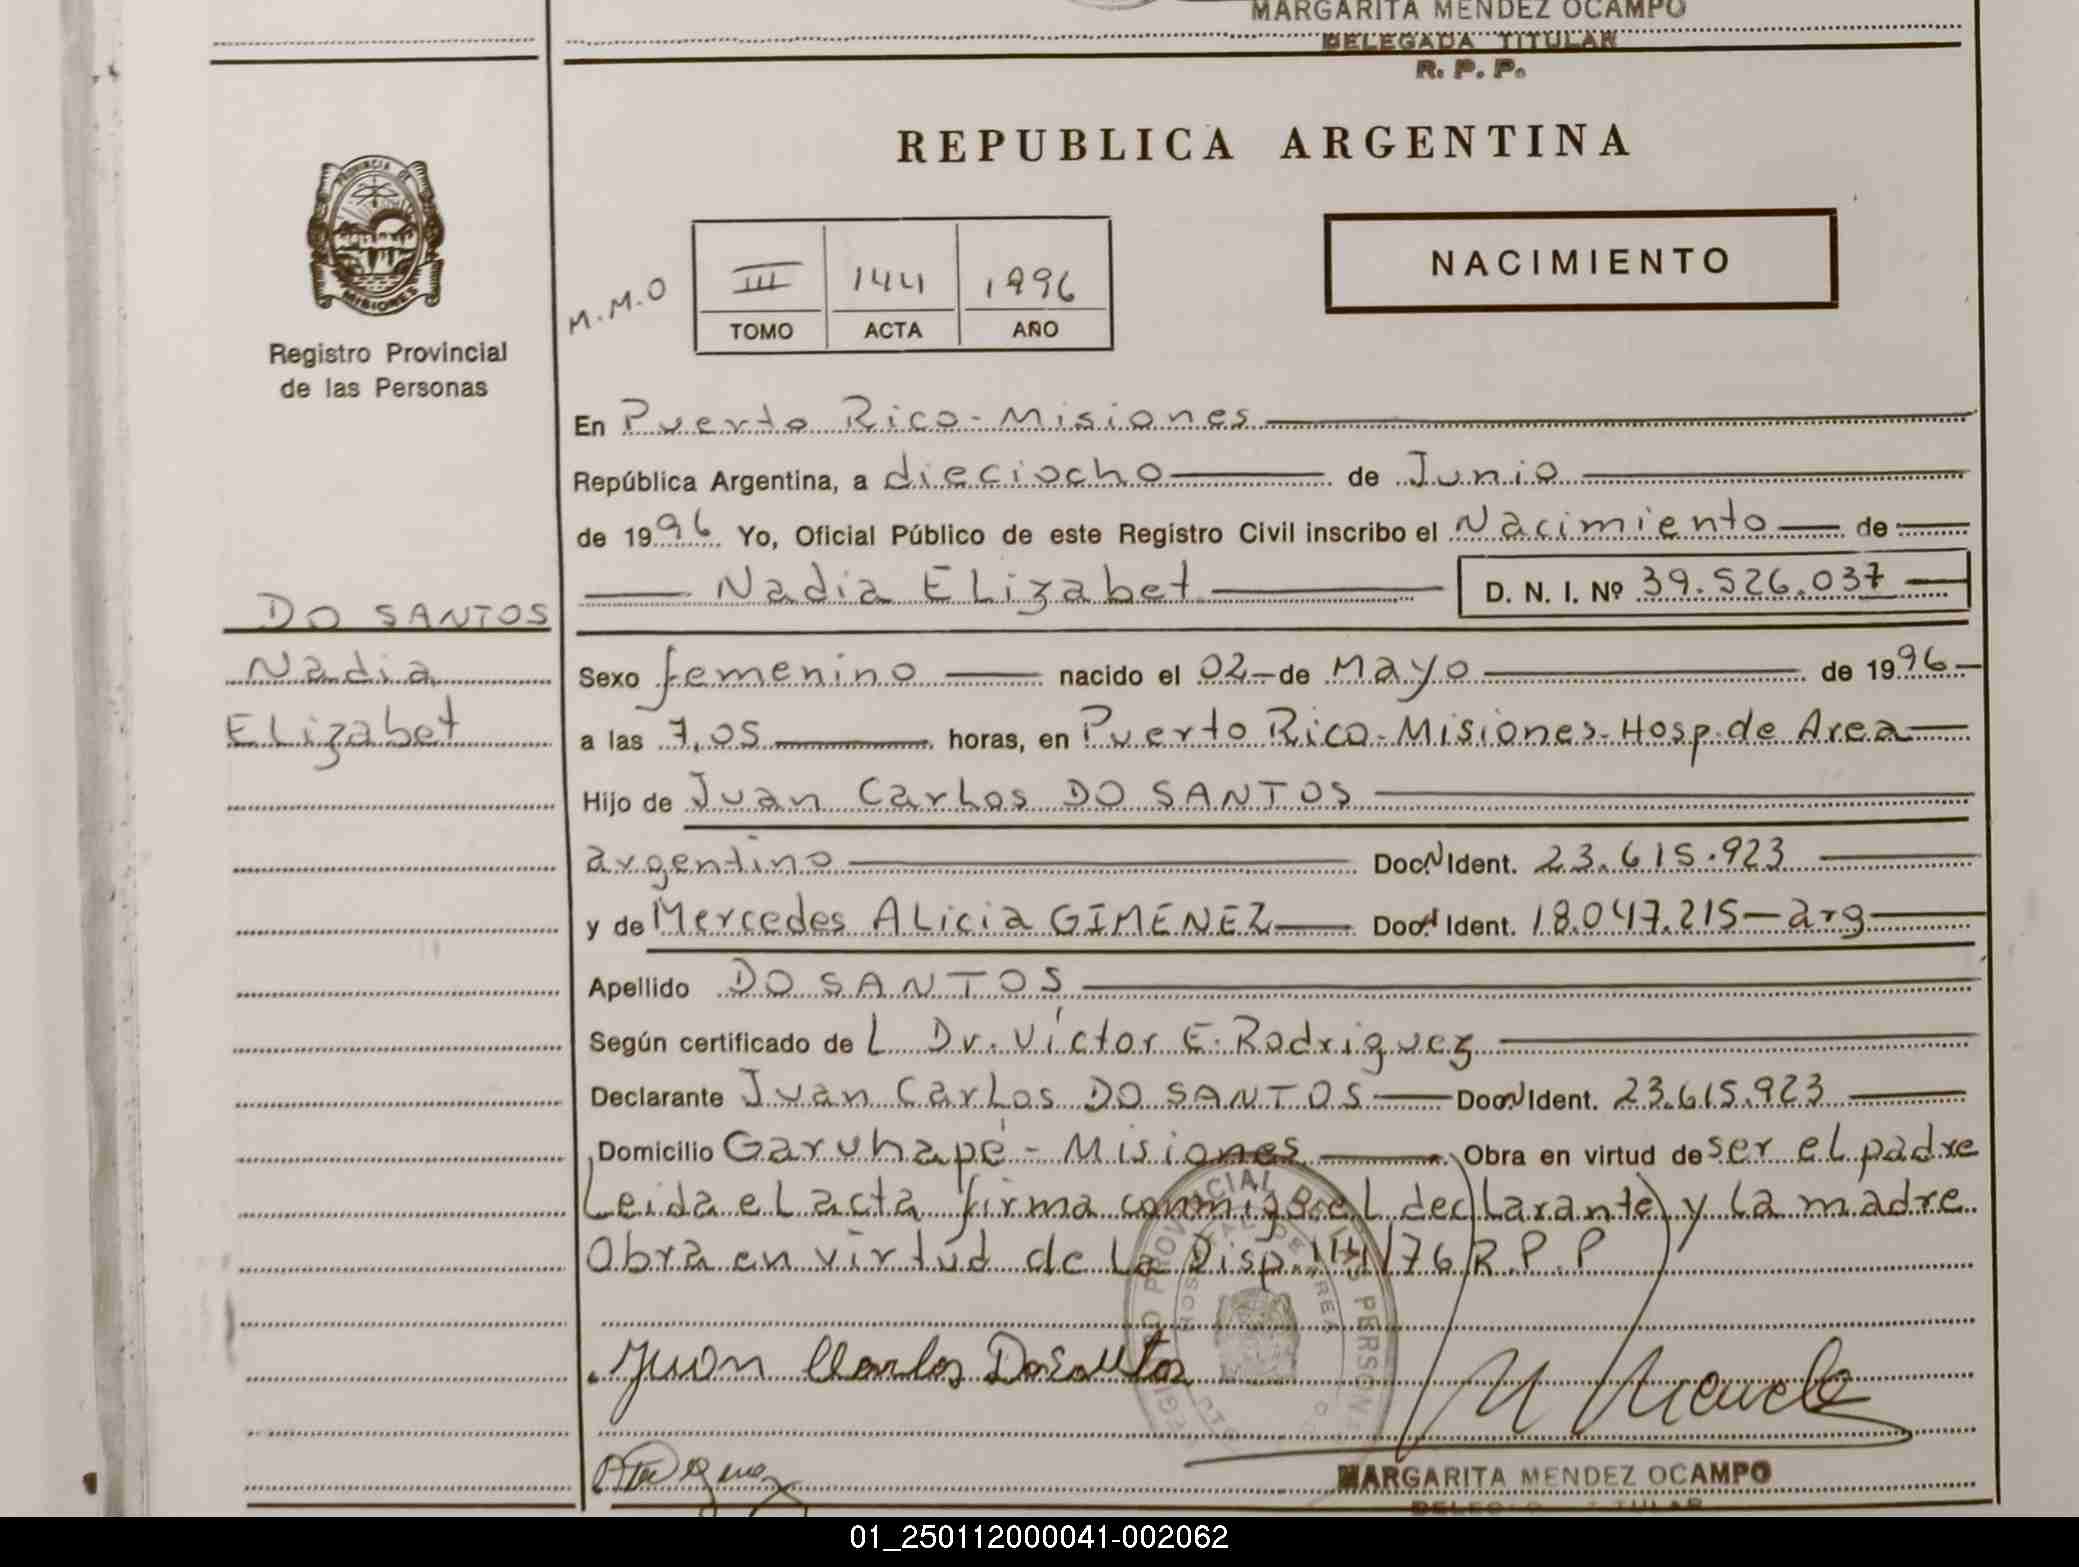 MARGARITA MENDEZ OCAMPO
DELEGADA TITULAR
R. P. P.
PROVINCIA DE
MISIONES
Registro Provincial
de las Personas
REPUBLICA ARGENTINA
M.M.O
III 144 1996
TOMO ACTA AÑO
NACIMIENTO
En Puerto Rico - Misiones
República Argentina, a dieciocho de Junio
de 1996 Yo, Oficial Público de este Registro Civil inscribo el Nacimiento de
Nadia ELizabet D. N. I. Nº 39.526.037
DO SANTOS
Nadia
ELizabet
Sexo femenino nacido el 02 de Mayo de 1996
a las 7,05 horas, en Puerto Rico - Misiones - Hosp. de Area
Hijo de Juan CarLos DO SANTOS
argentino Doc. N Ident. 23.615.923
y de Mercedes ALicia GIMENEZ Doc. N Ident. 18.047.215 - arg
Apellido DO SANTOS
Según certificado de L Dr. Víctor E. Rodriguez
Declarante Juan CarLos DO SANTOS Doc. N Ident. 23.615.923
Domicilio Garuhapé - Misiones Obra en virtud de ser el padre
Leida el acta firma conmigo el declarante y La madre
Obra en virtúd de La Disp. 141/76 R.P.P
Juan Carlos Dosantos
MARGARITA MENDEZ OCAMPO
01_250112000041-002062